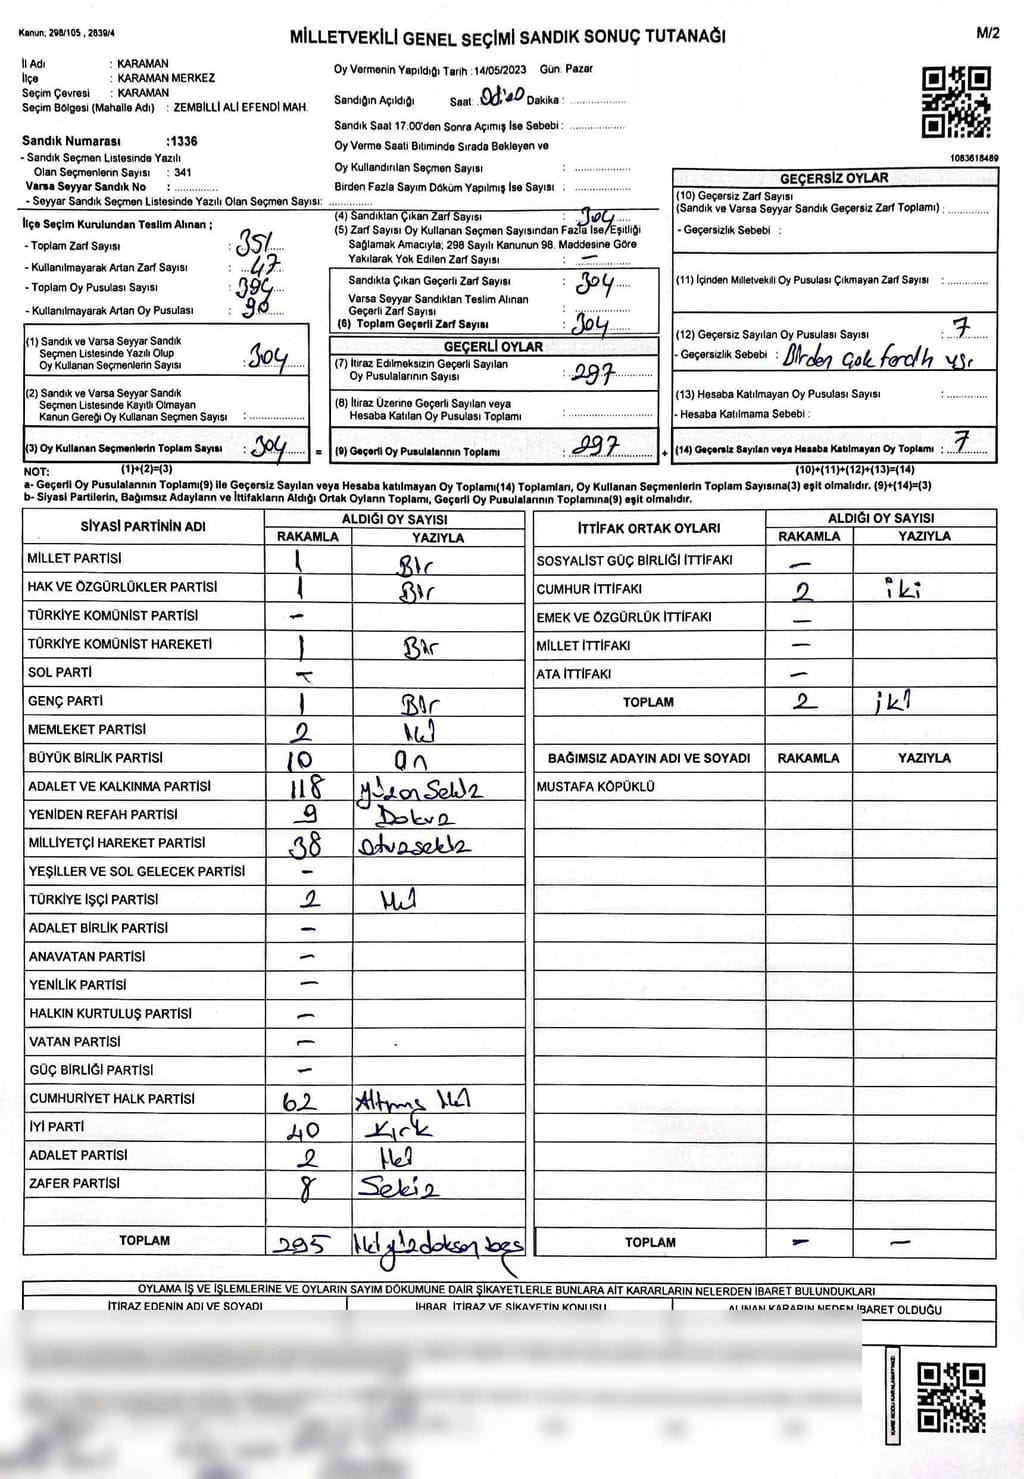 Kanun; 298/105 , 2839/4
MİLLETVEKİLİ GENEL SEÇİMİ SANDIK SONUÇ TUTANAĞI
M/2
İl Adı : KARAMAN
İlçe : KARAMAN MERKEZ
Seçim Çevresi : KARAMAN
Seçim Bölgesi (Mahalle Adı) : ZEMBİLLİ ALİ EFENDİ MAH.
Sandık Numarası :1336
- Sandık Seçmen Listesinde Yazılı
Olan Seçmenlerin Sayısı : 341
Varsa Seyyar Sandık No : ..............
- Seyyar Sandık Seçmen Listesinde Yazılı Olan Seçmen Sayısı: ..............
Oy Vermenin Yapıldığı Tarih :14/05/2023 Gün: Pazar
Sandığın Açıldığı Saat: Dakika : ..............
Sandık Saat 17:00'den Sonra Açımış İse Sebebi : ..............
Oy Verme Saati Bitiminde Sırada Bekleyen ve
Oy Kullandırılan Seçmen Sayısı : ..............
Birden Fazla Sayım Döküm Yapılmış İse Sayısı : ..............
1083618489
İlçe Seçim Kurulundan Teslim Alınan ;
- Toplam Zarf Sayısı : 351
- Kullanılmayarak Artan Zarf Sayısı : 47
- Toplam Oy Pusulası Sayısı : 394
- Kullanılmayarak Artan Oy Pusulası : 90
(1) Sandık ve Varsa Seyyar Sandık
Seçmen Listesinde Yazılı Olup
Oy Kullanan Seçmenlerin Sayısı : 304
(2) Sandık ve Varsa Seyyar Sandık
Seçmen Listesinde Kayıtlı Olmayan
Kanun Gereği Oy Kullanan Seçmen Sayısı : ..............
(3) Oy Kullanan Seçmenlerin Toplam Sayısı : 304 =
(4) Sandıktan Çıkan Zarf Sayısı : 304
(5) Zarf Sayısı Oy Kullanan Seçmen Sayısından Fazla İse/Eşitliği
Sağlamak Amacıyla; 298 Sayılı Kanunun 98. Maddesine Göre
Yakılarak Yok Edilen Zarf Sayısı : —
Sandıkla Çıkan Geçerli Zarf Sayısı : 304
Varsa Seyyar Sandıktan Teslim Alınan
Geçerli Zarf Sayısı : ..............
(6) Toplam Geçerli Zarf Sayısı : 304
GEÇERLİ OYLAR
(7) İtiraz Edilmeksizin Geçerli Sayılan
Oy Pusulalarının Sayısı : 297
(8) İtiraz Üzerine Geçerli Sayılan veya
Hesaba Katılan Oy Pusulası Toplamı : ..............
(9) Geçerli Oy Pusulalarının Toplamı : 297 +
GEÇERSİZ OYLAR
(10) Geçersiz Zarf Sayısı
(Sandık ve Varsa Seyyar Sandık Geçersiz Zarf Toplamı) : ..............
- Geçersizlik Sebebi :
(11) İçinden Milletvekili Oy Pusulası Çıkmayan Zarf Sayısı : ..............
(12) Geçersiz Sayılan Oy Pusulası Sayısı : 7
- Geçersizlik Sebebi : Birden çok
(13) Hesaba Katılmayan Oy Pusulası Sayısı : ..............
- Hesaba Katılmama Sebebi :
(14) Geçersiz Sayılan veya Hesaba Katılmayan Oy Toplamı : 7
NOT: (1)+(2)=(3) (10)+(11)+(12)+(13)=(14)
a- Geçerli Oy Pusulalarının Toplamı(9) ile Geçersiz Sayılan veya Hesaba katılmayan Oy Toplamı(14) Toplamları, Oy Kullanan Seçmenlerin Toplam Sayısına(3) eşit olmalıdır. (9)+(14)=(3)
b- Siyasi Partilerin, Bağımsız Adayların ve İttifakların Aldığı Ortak Oyların Toplamı, Geçerli Oy Pusulalarının Toplamına(9) eşit olmalıdır.
SİYASİ PARTİNİN ADI ALDIĞI OY SAYISI
RAKAMLA YAZIYLA
MİLLET PARTİSİ 1 Bir
HAK VE ÖZGÜRLÜKLER PARTİSİ 1 Bir
TÜRKİYE KOMÜNİST PARTİSİ –
TÜRKİYE KOMÜNİST HAREKETİ 1 Bir
SOL PARTİ –
GENÇ PARTİ 1 Bir
MEMLEKET PARTİSİ 2 iki
BÜYÜK BİRLİK PARTİSİ 10 On
ADALET VE KALKINMA PARTİSİ 118 yüzonSekiz
YENİDEN REFAH PARTİSİ 9 Dokuz
MİLLİYETÇİ HAREKET PARTİSİ 38 otuzsekiz
YEŞİLLER VE SOL GELECEK PARTİSİ –
TÜRKİYE İŞÇİ PARTİSİ 2 iki
ADALET BİRLİK PARTİSİ –
ANAVATAN PARTİSİ –
YENİLİK PARTİSİ –
HALKIN KURTULUŞ PARTİSİ –
VATAN PARTİSİ –
GÜÇ BİRLİĞİ PARTİSİ –
CUMHURİYET HALK PARTİSİ 62 Altmış iki
İYİ PARTİ 40 Kırk
ADALET PARTİSİ 2 iki
ZAFER PARTİSİ 8 Sekiz
TOPLAM 295 ikiyüzdoksan beş
İTTİFAK ORTAK OYLARI ALDIĞI OY SAYISI
RAKAMLA YAZIYLA
SOSYALİST GÜÇ BİRLİĞİ İTTİFAKI –
CUMHUR İTTİFAKI 2 iki
EMEK VE ÖZGÜRLÜK İTTİFAKI –
MİLLET İTTİFAKI –
ATA İTTİFAKI –
TOPLAM 2 iki
BAĞIMSIZ ADAYIN ADI VE SOYADI RAKAMLA YAZIYLA
MUSTAFA KÖPÜKLÜ
TOPLAM – –
OYLAMA İŞ VE İŞLEMLERİNE VE OYLARIN SAYIM DÖKÜMÜNE DAİR ŞİKAYETLERLE BUNLARA AİT KARARLARIN NELERDEN İBARET BULUNDUKLARI
İTİRAZ EDENİN ADI VE SOYADI İHBAR, İTİRAZ VE ŞİKAYETİN KONUSU ALINAN KARARIN NEDEN İBARET OLDUĞU